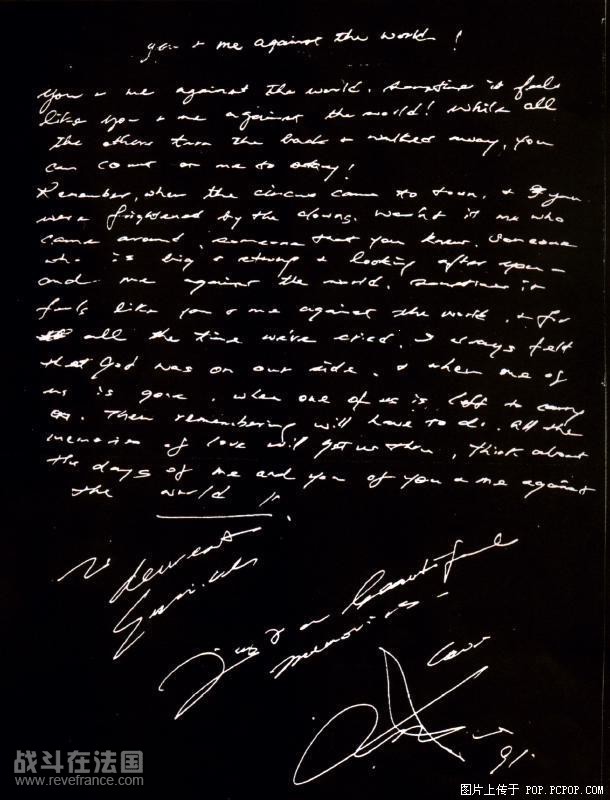 you + me against the world!
you + me against the world. Sometime it feels
like you + me against the world! While all
the others turn the back & walked away, you
can count on me to stay!
Remember, when the circus came to town, & you
were frightened by the clowns. Wasn't it me who
came around, someone that you knew. Someone
who is big & strong & looking after you -
and me against the world. Sometimes it
feels like you & me against the world, & for
all the time we've cried. I always felt
that God was on our side. & when one of
us is gone, when one of us is left to carry
on. Then remembering will have to do. All the
memories of love will get us thru, think about
the days of me and you of you & me against
the world !!
beautiful
memories -
91.
战斗在法国
www.revefrance.com
图片上传于 POP.PCPOP.COM